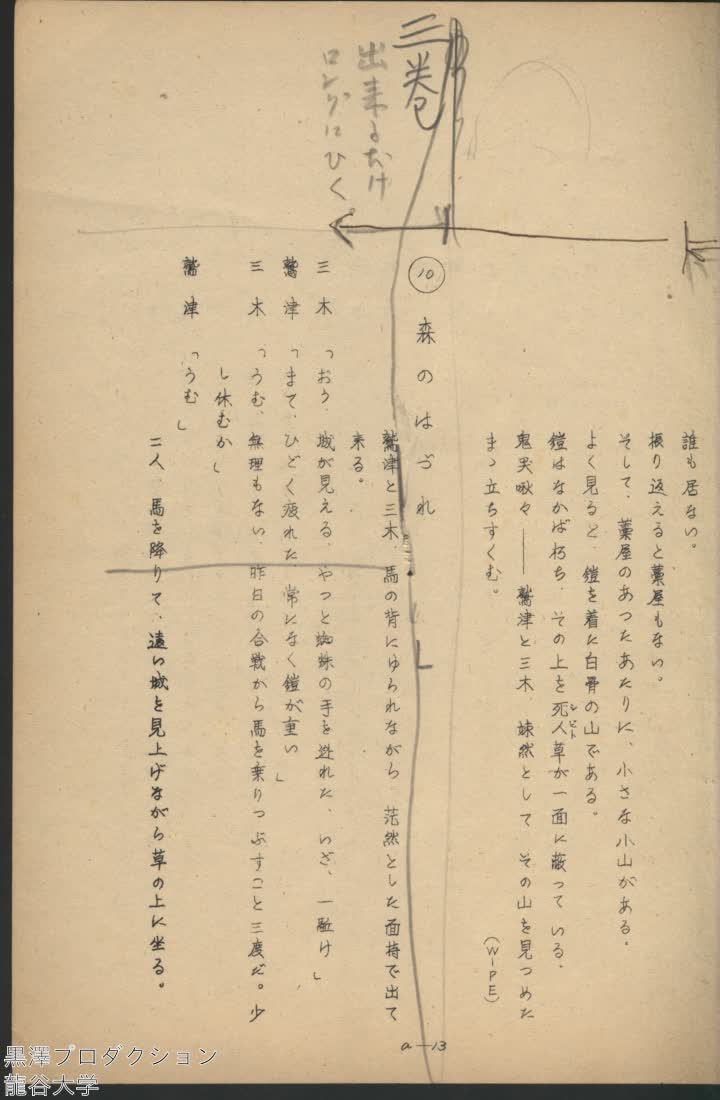 誰も居ない。
振り返えると藁屋もない。
そして、藁屋のあつたあたりに、小さな小山がある。
よく見ると、鎧を着た白骨の山である。
鎧はなかば朽ち、その上を死人草が一面に蔽っている。
シビト
鬼哭啾々――鷲津と三木、竦然として その山を見つめた
まゝ立ちすくむ。
(WIPE)
三巻
出来るだけ
ロングにひく
⑩ 森のはづれ
鷲津と三木、馬の背にゆられながら 茫然とした面持で出て
来る。
三木 「おう、城が見える、やつと蜘蛛の手を逃れた、いざ、一駈け」
鷲津 「まて、ひどく疲れた、常になく鎧が重い」
三木 「うむ、無理もない、昨日の合戦から馬を乗りつぶすこと三度だ。少
し休むか」
鷲津 「うむ」
二人、馬を降りて、遠い城を見上げながら草の上に坐る。
a―13
黒澤プロダクション
龍谷大学